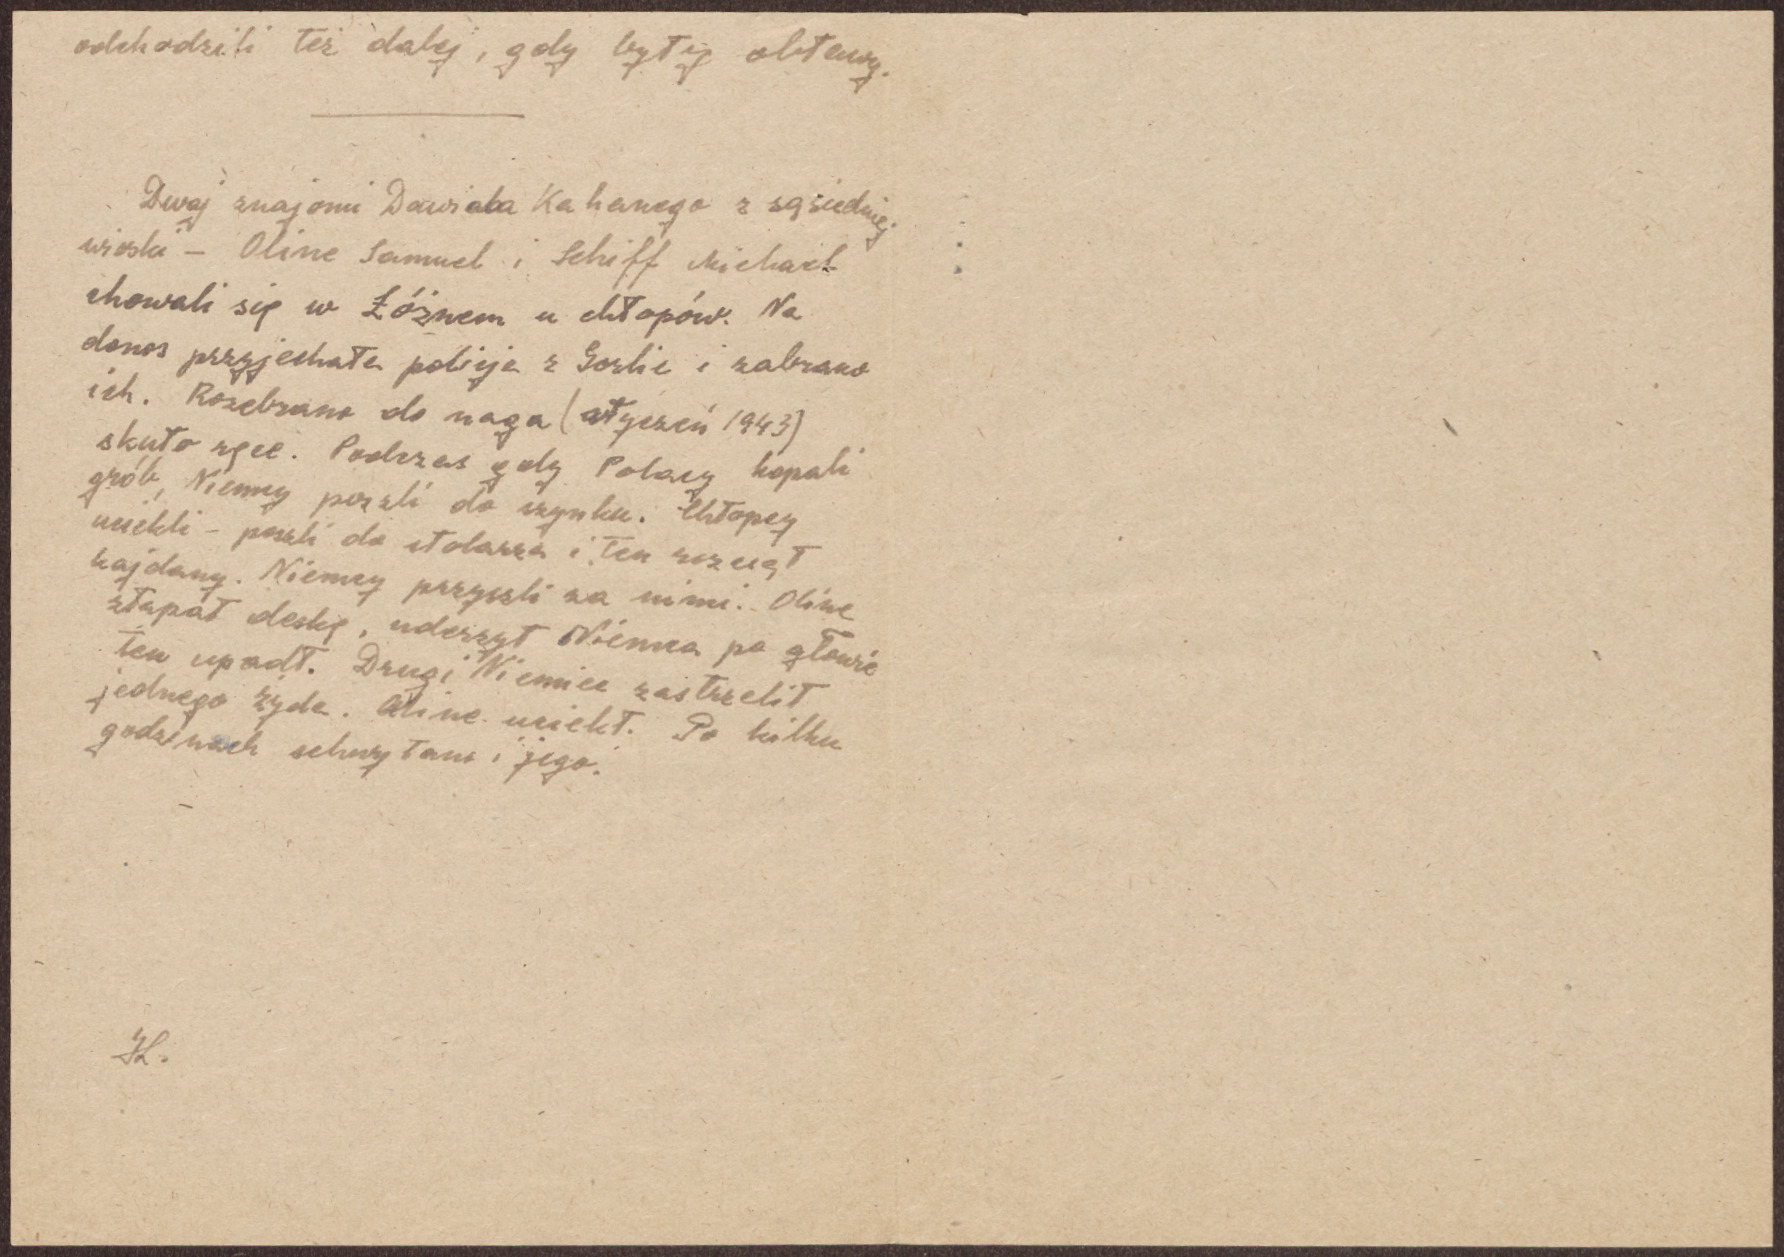 odchodzili też dalej, gdy były obławy.
Dwaj znajomi Dawida Kahanego z sąsiedniej
wioski – Oline Samuel i Schiff Michael
chowali się w Łóżnem u chłopów. Na
donos przyjechała policja z Gorlic i zabrano
ich. Rozebrano do naga (styczeń 1943)
skuto ręce. Podczas gdy Polacy kopali
grób, Niemcy poszli do szynku. Chłopcy
uciekli – poszli do stolarza i ten rozciął
kajdany. Niemcy przyszli za nimi. Oline
złapał deskę, uderzył Niemca po głowie
ten upadł. Drugi Niemiec zastrzelił
jednego żyda. Oline uciekł. Po kilku
godzinach schwytano i jego.